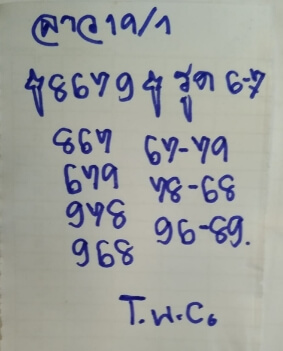 ลาว 19/1
8679 รูด 6-7
867 67-79
679 78-68
978 96-89.
968
T.W.C.